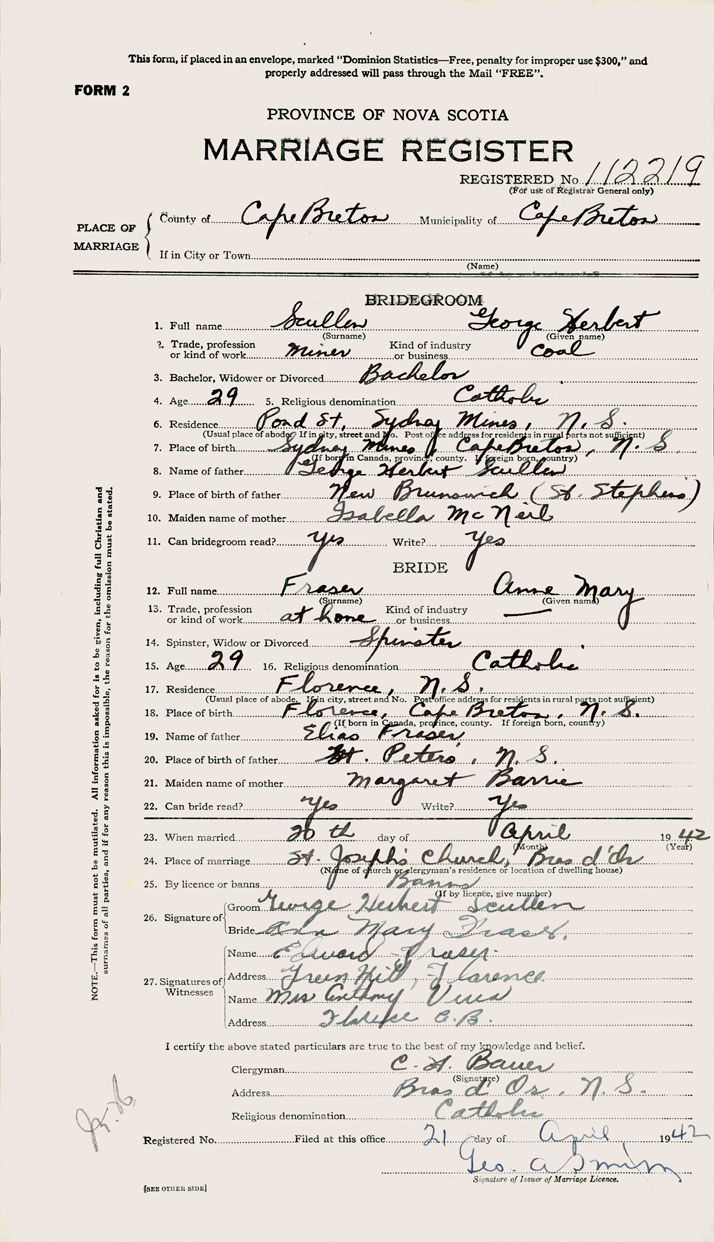 This form, if placed in an envelope, marked "Dominion Statistics—Free, penalty for improper use $300," and
properly addressed will pass through the Mail "FREE".
FORM 2
PROVINCE OF NOVA SCOTIA
MARRIAGE REGISTER
REGISTERED No. 112219
(For use of Registrar General only)
PLACE OF MARRIAGE
County of Cape Breton Municipality of Cape Breton
If in City or Town
(Name)
BRIDEGROOM
1. Full name Scullen George Herbert
(Surname) (Given name)
2. Trade, profession or kind of work miner Kind of industry or business coal
3. Bachelor, Widower or Divorced Bachelor
4. Age 29 5. Religious denomination Catholic
6. Residence Pond St, Sydney Mines, N.S.
(Usual place of abode. If in city, street and No. Post office address for residents in rural parts not sufficient)
7. Place of birth Sydney Mines, Cape Breton, N.S.
(If born in Canada, province, county. If foreign born, country)
8. Name of father George Herbert Scullen
9. Place of birth of father New Brunswick (St. Stephens)
10. Maiden name of mother Isabella McNeil
11. Can bridegroom read? yes Write? yes
BRIDE
12. Full name Fraser Anne Mary
(Surname) (Given name)
13. Trade, profession or kind of work at home Kind of industry or business —
14. Spinster, Widow or Divorced Spinster
15. Age 29 16. Religious denomination Catholic
17. Residence Florence, N.S.
(Usual place of abode. If in city, street and No. Post office address for residents in rural parts not sufficient)
18. Place of birth Florence, Cape Breton, N.S.
(If born in Canada, province, county. If foreign born, country)
19. Name of father Elias Fraser
20. Place of birth of father St. Peters, N.S.
21. Maiden name of mother Margaret Barrie
22. Can bride read? yes Write? yes
23. When married 20th day of April 1942
(Month) (Year)
24. Place of marriage St. Joseph's Church, Bras d'Or
(Name of church or clergyman's residence or location of dwelling house)
25. By licence or banns Banns
(If by licence, give number)
26. Signature of Groom George Herbert Scullen
Bride Ann Mary Fraser.
27. Signatures of Witnesses
Name Edward Fraser
Address Green Hill, Florence
Name Mrs Anthony
Address Florence C.B.
I certify the above stated particulars are true to the best of my knowledge and belief.
Clergyman C. H. Bauer
(Signature)
Address Bras d'Or, N.S.
Religious denomination Catholic
Registered No. Filed at this office 21 day of April 1942
Geo. A
Signature of Issuer of Marriage Licence.
[SEE OTHER SIDE]
NOTE.—This form must not be mutilated. All information asked for is to be given, including full Christian and
surnames of all parties, and if for any reason this is impossible, the reason for the omission must be stated.